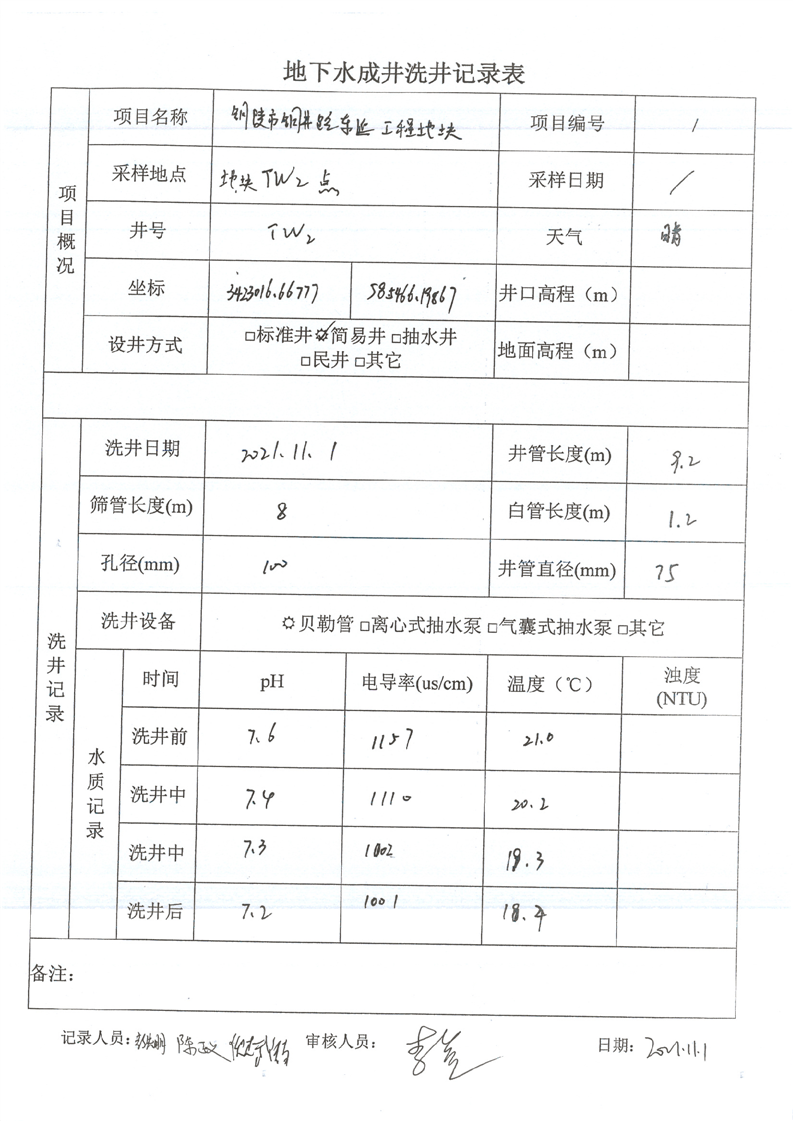 地下水成井洗井记录表
项目概况
项目名称 铜陵市铜井路东延工程地块 项目编号 /
采样地点 地块TW2点 采样日期 /
井号 TW2 天气 晴
坐标 3423016.66777 585466.19867 井口高程（m）
设井方式 □标准井☼简易井□抽水井 地面高程（m）
□民井□其它
洗井记录
洗井日期 2021.11.1 井管长度(m) 9.2
筛管长度(m) 8 白管长度(m) 1.2
孔径(mm) 100 井管直径(mm) 75
洗井设备 ☼贝勒管□离心式抽水泵□气囊式抽水泵□其它
水质记录
时间 pH 电导率(us/cm) 温度（℃） 浊度
(NTU)
洗井前 7.6 1157 21.0
洗井中 7.4 1110 20.2
洗井中 7.3 1002 18.3
洗井后 7.2 1001 18.4
备注：
记录人员： 陈政 审核人员： 日期：2021.11.1